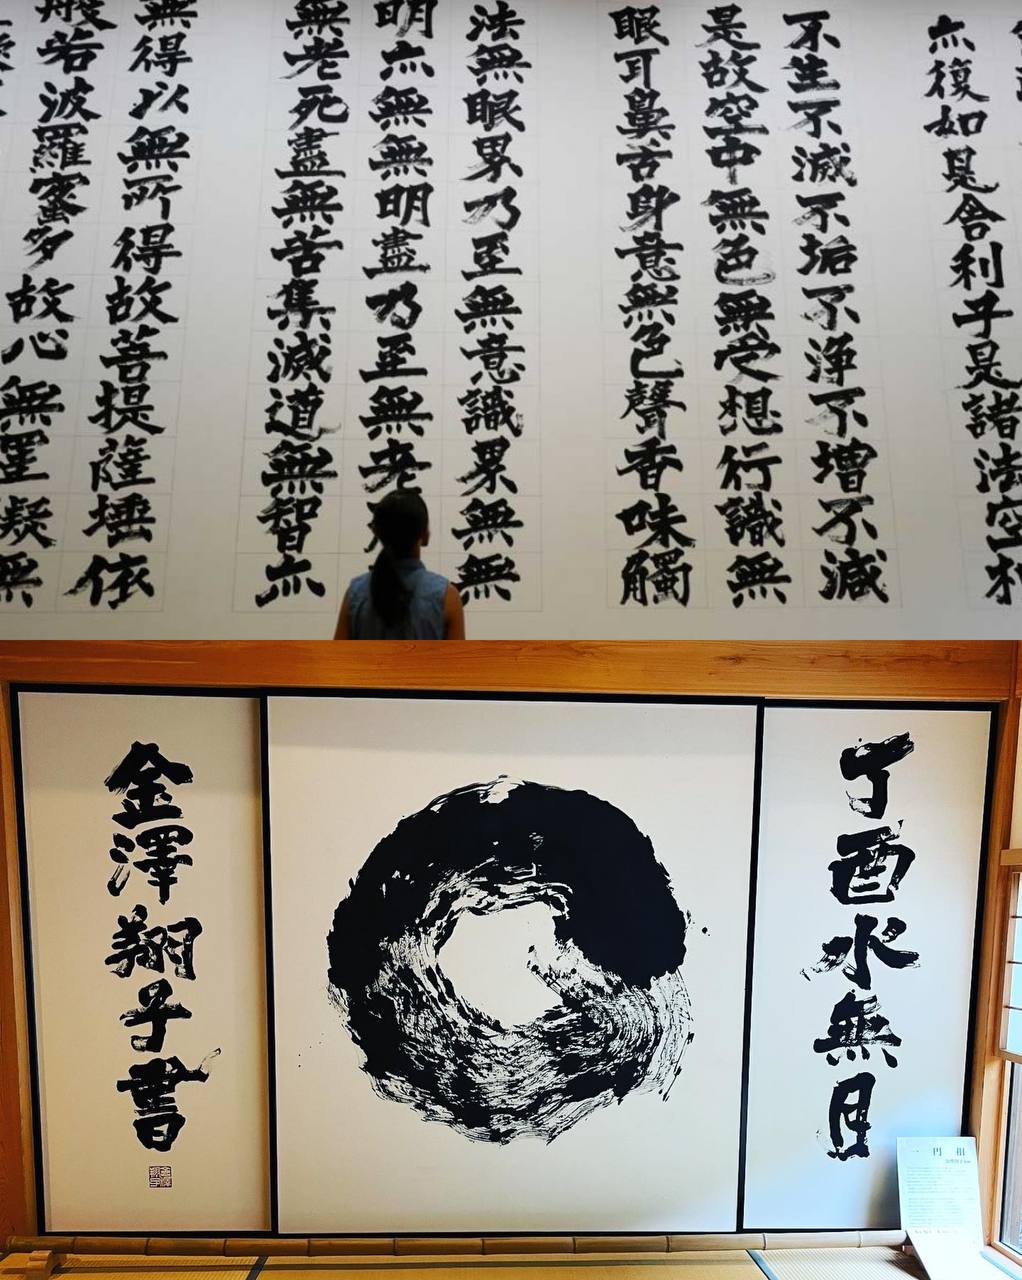 亦復如是舎利子是諸法空相
不生不滅不垢不浄不増不減
是故空中無色無受想行識無
眼耳鼻舌身意無色聲香味觸
法無眼界乃至無意識界無無
明亦無無明盡乃至無老
無老死盡無苦集滅道無智亦
無得以無所得故菩提薩埵依
般若波羅蜜多故心無罣礙無
丁酉水無月
金澤翔子書
一円相